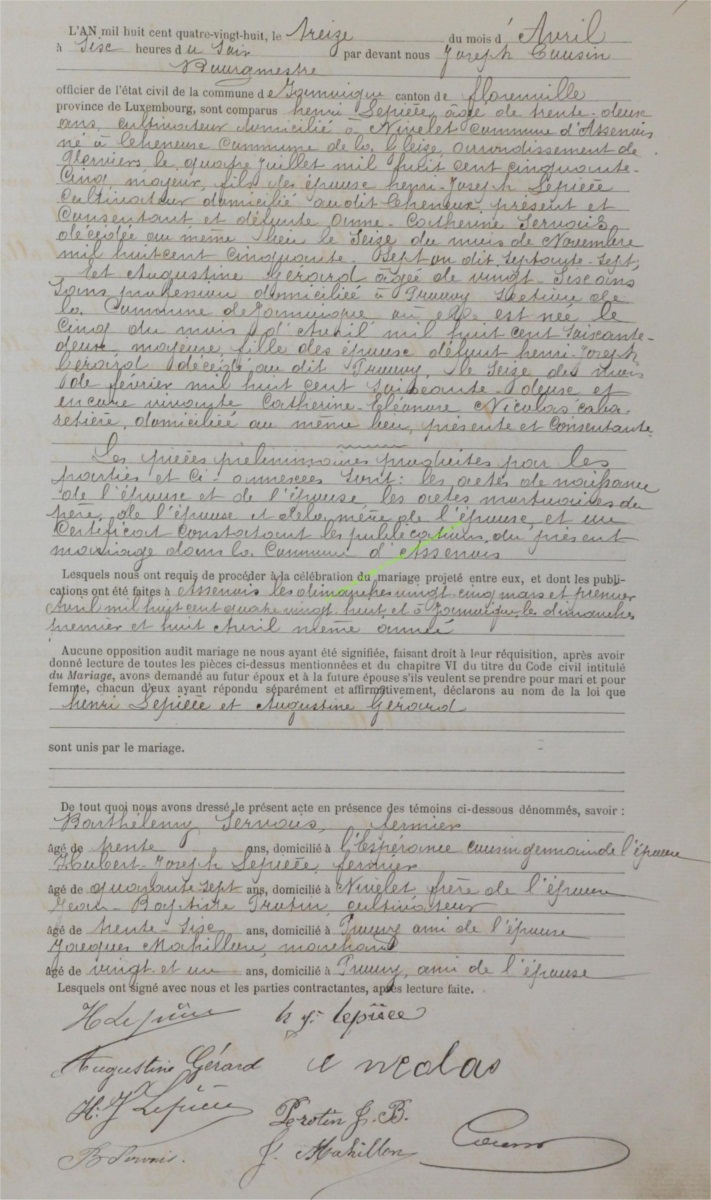 L'AN mil huit cent quatre-vingt-huit, le treize du mois d' Avril
à Sisc heures du Soir par devant nous Joseph Cousin
Bourgmestre
officier de l'état civil de la commune de Jamoigne canton de florenville
province de Luxembourg, sont comparus henri Lepièce, âgé de trente-deux
ans, cultivateur domicilié à Nivelet Commune d'Assenois
né à Cheneux Commune de la Gleize, arrondissement de
Verviers le quatre Juillet mil huit cent cinquante-
Cinq majeur, fils des épouse henri-Joseph Lepièce
Cultivateur domicilié audit Cheneux, présent et
Consentant et défunte Anne-Catherine Servais
décédée au même lieu le Seize du mois de Novembre
mil huitcent cinquante-Sept ou dit Septante-Sept,
et Augustine Gérard âgée de vingt-Sisc ans
Sans profession domiciliée à Prouvy Section de
la Commune de Jamoigne où elle est née le
Cinq du mois d'Avril mil huit cent Soixante-
deux majeure, fille des épouse défunt henri-Joseph
Gérard décédé au dit Prouvy, le Seize du mois
de février mil huit cent Soixante-deuse et
encore vivante Catherine-Eléonore Nicolas caba-
retière, domiciliée au même lieu, présente et Consentante
Les pièces préliminaires produites par les
parties et Ci-annexées Sont: les actes de naissance
de l'épouse et de l'épouse, les actes mortuaires du
père de l'épouse et de la mère de l'épouse, et un
Certificat Constatant les publications du présent
mariage dans la Commune d'Assenois
Lesquels nous ont requis de procéder à la célébration du mariage projeté entre eux, et dont les publi-
cations ont été faites à Assenois les dimanches vingt cinq mars et premier
Avril mil huit cent quatre vingt huit et à Jamoigne les dimanches
premier et huit Avril même année
Aucune opposition audit mariage ne nous ayant été signifiée, faisant droit à leur réquisition, après avoir
donné lecture de toutes les pièces ci-dessus mentionnées et du chapitre VI du titre du Code civil intitulé
du Mariage, avons demandé au futur époux et à la future épouse s'ils veulent se prendre pour mari et pour
femme, chacun d'eux ayant répondu séparément et affirmativement, déclarons au nom de la loi que
henri Lepièce et Augustine Gérard
sont unis par le mariage.
De tout quoi nous avons dressé le présent acte en présence des témoins ci-dessous dénommés, savoir :
Barthélemy Servais, fermier
âgé de trente ans, domicilié à l'Espérance cousin germain de l'épouse
Hubert-Joseph Lepièce, fermier
âgé de quarante-sept ans, domicilié à Nivelet frère de l'épouse
Jean-Baptiste Protin cultivateur
âgé de trente-Sisc ans, domicilié à Prouvy ami de l'épouse
Jacques Mahillon, marchand
âgé de vingt et un ans, domicilié à Prouvy, ami de l'épouse
Lesquels ont signé avec nous et les parties contractantes, après lecture faite.
H Lepièce h. j. lepièce
Augustine Gérard C nicolas
H. J Lepièce Protin J. B.
B Servais. J. Mahillon Cousin